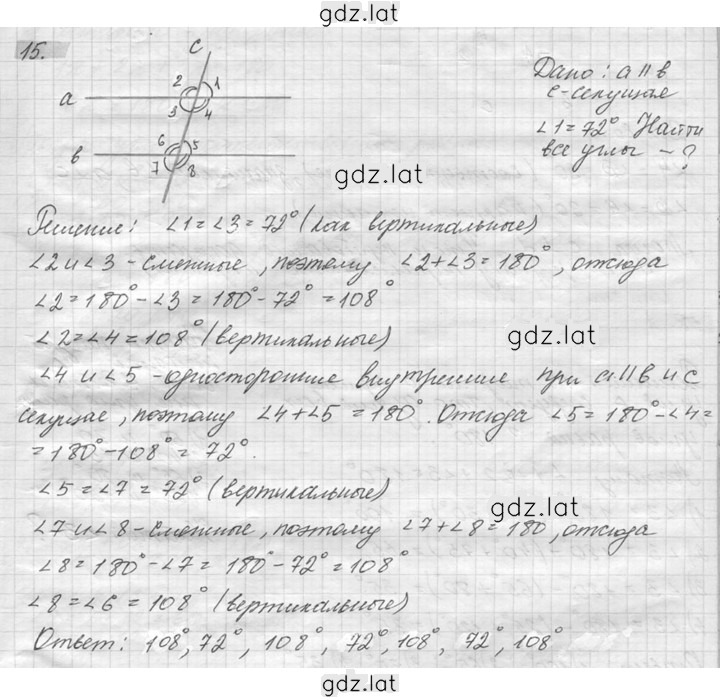 gdz.lat
15.
c
Дано: a || в
c-секущая
∠1=72° Найти
все углы - ?
2 1
a
3 4
6 5
в
7 8
gdz.lat
Решение: ∠1=∠3=72° (как вертикальные)
∠2 и ∠3 - смежные, поэтому ∠2+∠3=180°, отсюда
∠2=180°-∠3=180°-72°=108°
gdz.lat
∠2=∠4=108° (вертикальные)
∠4 и ∠5 - односторонние внутренние при a||в и c
секущае, поэтому ∠4+∠5=180°. Отсюда ∠5=180°-∠4=
=180°-108°=72°.
∠5=∠7=72° (вертикальные)
gdz.lat
∠7 и ∠8 - смежные, поэтому ∠7+∠8=180, отсюда
∠8=180°-∠7=180°-72°=108°
∠8=∠6=108° (вертикальные)
Ответ: 108°, 72°, 108°, 72°, 108°, 72°, 108°
gdz.lat